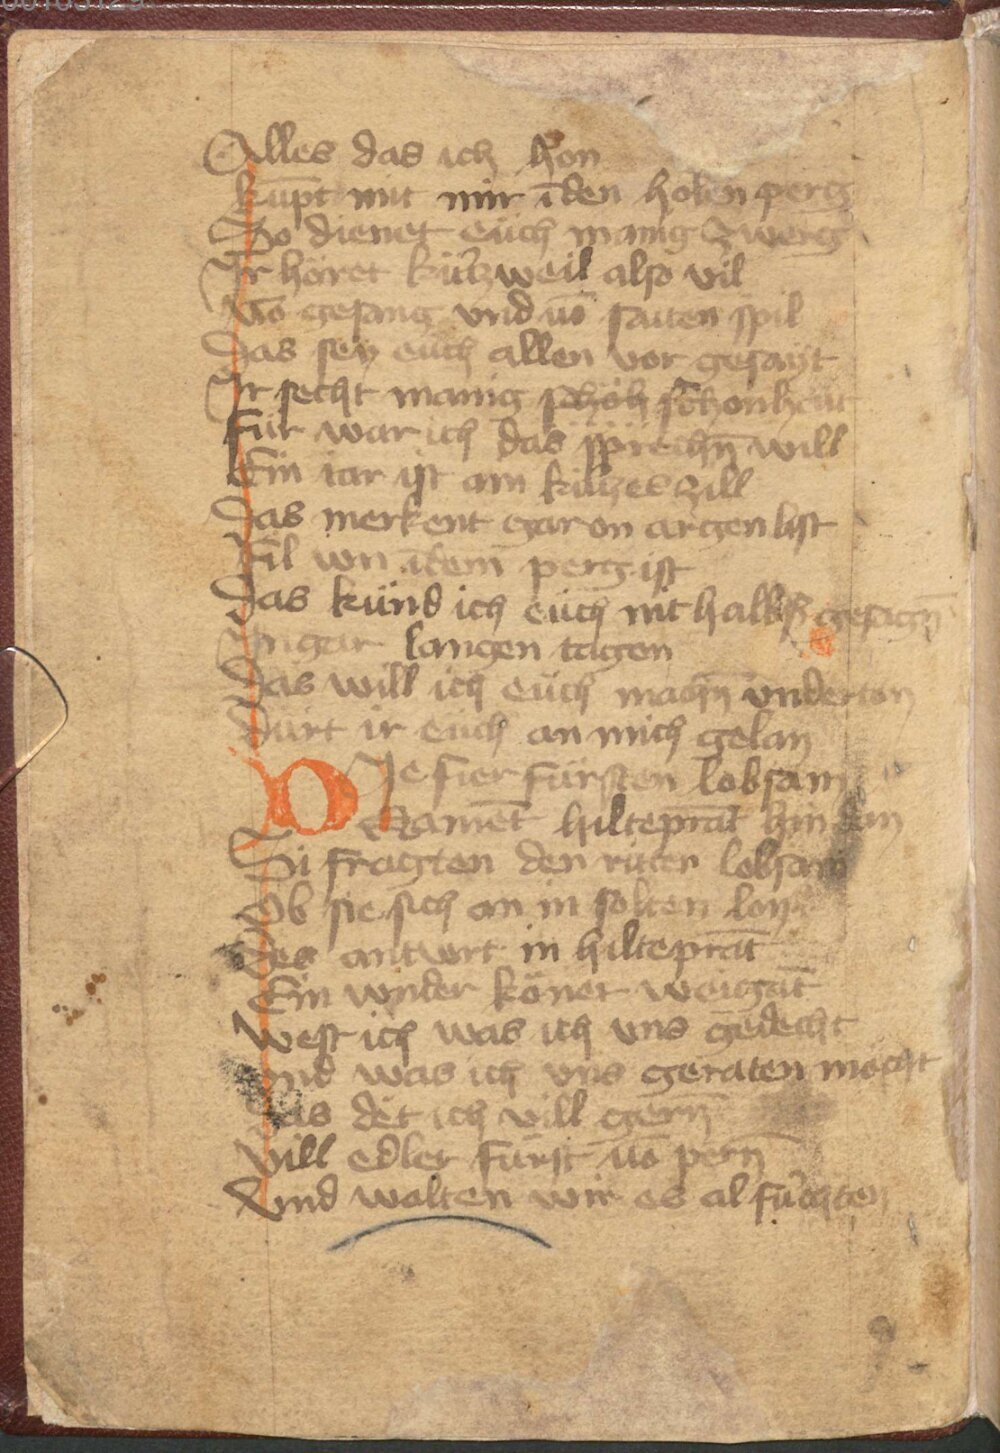 Alles das ich hon
kūpt mit mir ī den holen perg
So dienet eüch manig zwerg
Ir höret kürtzweil also vil
Vō gesang vnd vō saiten spil
Das sey eüch allen vor gesayt
Ir secht manig schöh schonheit
Für war ich das sprechn̄ will
Ein iar ist am kurtzes zill
Das merkent gar on argen list
Fil wn ī dem perg ist
Das künd ich eüch nit halbs gesagn̄
In gar langen tagen
Das will ich eüch machn̄ vnderton
Dürt ir eüch an mich gelan
Die fier fürsten lobsam
Namēt hilteprāt hin dan
Si fragten den riter lobsam
Ob sie sich an in solten lon
Des antwrt in hilteprāt
Ein wnder köner weigāt
West ich was ich vns gedecht
Vnd was ich vns geraten möcht
Das det ich vill gern̄
Vill edler fürst vō pern̄
Vnd wolten wir es al fürchten